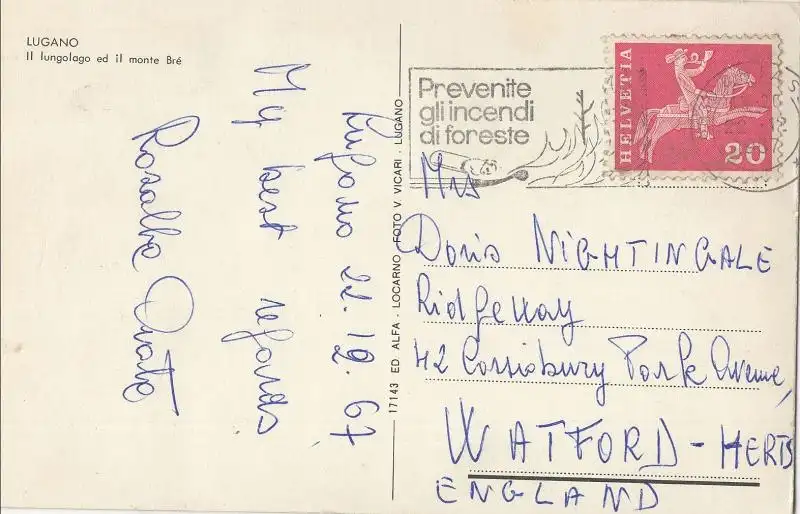 LUGANO
Il lungolago ed il monte Bré
Lugano 22.10.67
My best regards
Rosalba
17143 ED ALFA · LOCARNO - FOTO V. VICARI · LUGANO
Prevenite
gli incendi
di foreste
HELVETIA
20
Mrs
Doris NIGHTINGALE
Ridgeway
42 Cassiobury Park Avenue,
WATFORD - HERTS
ENGLAND